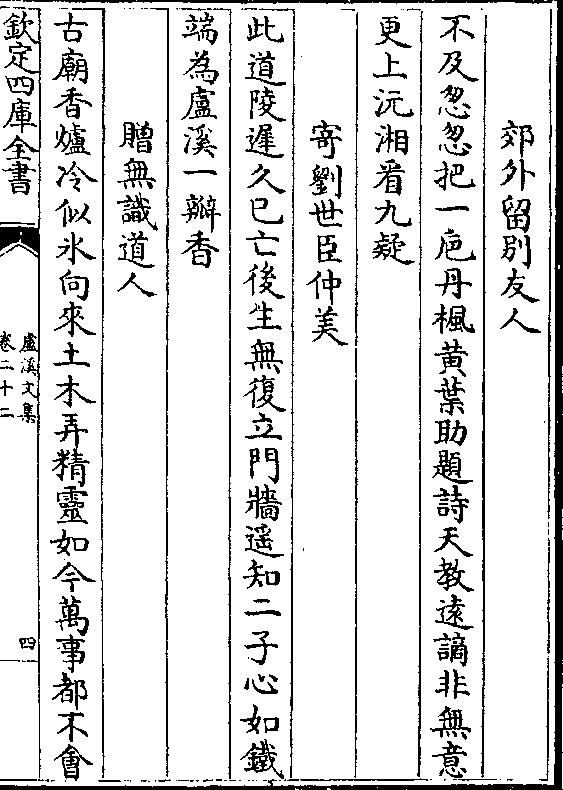 郊外留别友人
不及怱怱把一巵丹楓黄葉助題詩天教逺謫非無意
更上沅湘看九疑
寄劉世臣仲美
此道陵遲久已亡後生無復立門牆遥知二子心如鐵
端為盧溪一瓣香
贈無識道人
古廟香爐冷似氷向來土木弄精靈如今萬事都不㑹
欽定四庫全書
盧溪文集
卷二十二
四